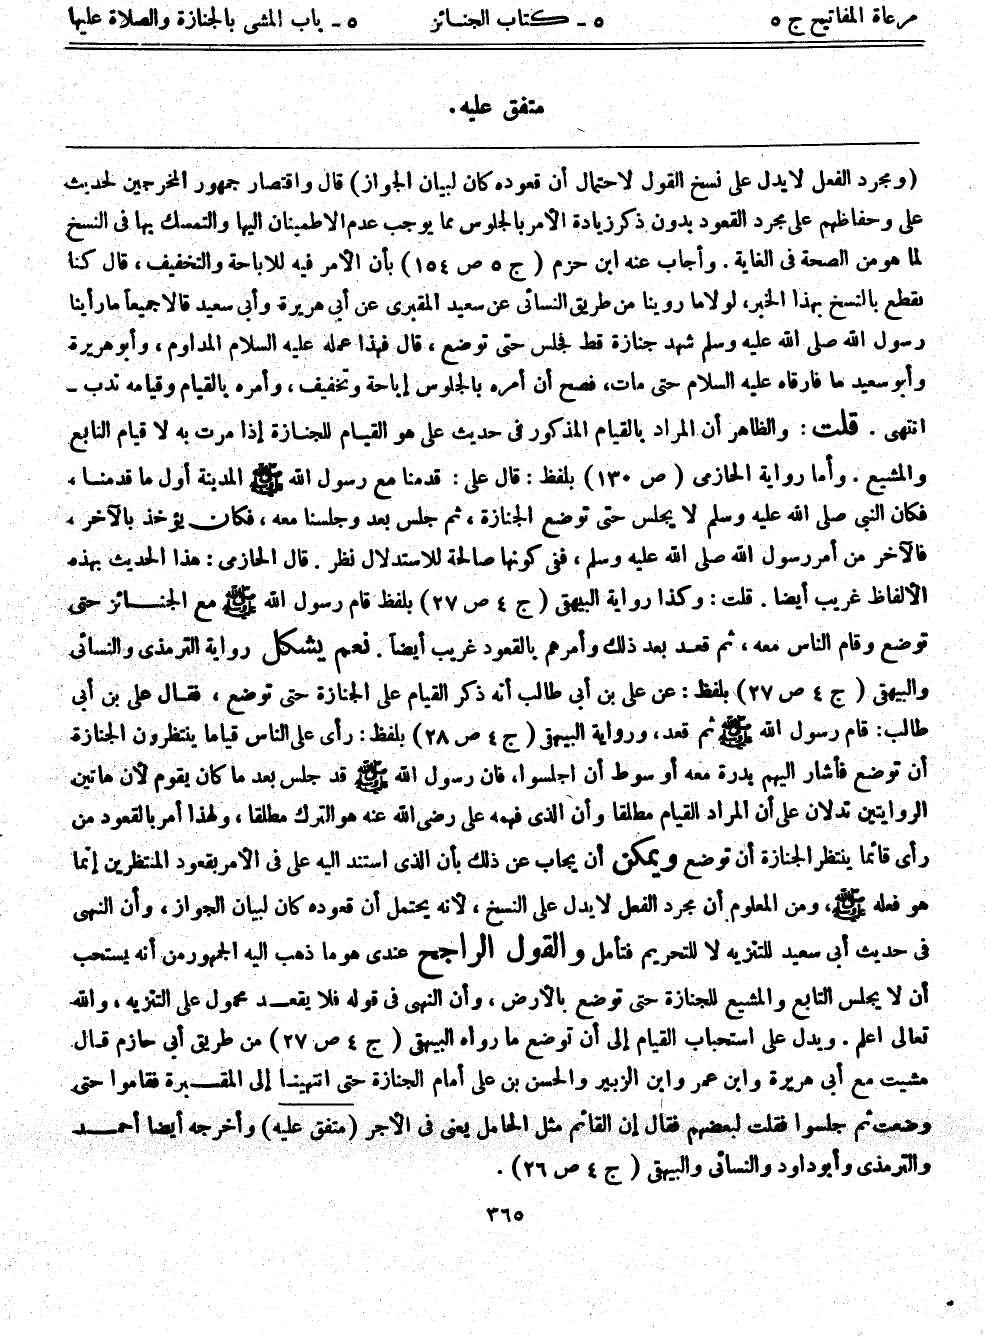 مرعاة المفاتيح ج ٥ ٥ ـ كتاب الجنــائز ٥ ـ باب المشى بالجنازة والصلاة عليها
متفق عليه .
(ومجرد الفعل لايدل على نسخ القول لاحتمال أن قعوده كان لبيان الجواز) قال واقتصار جمهور المخرجين لحديث
على وحفاظهم على مجرد القعود بدون ذكر زيادة الأمر بالجلوس مما يوجب عدم الاطمينان اليها والتمسك بها فى النسخ
لما هو من الصحة فى الغاية . وأجاب عنه ابن حزم ( ج ٥ ص ١٥٤ ) بأن الأمر فيه للاباحة والتخفيف ، قال كنا
نقطع بالنسخ بهذا الخبر، لولا ما روينا من طريق النسائى عن سعيد المقبرى عن أبى هريرة وأبى سعيد قالا جميعاً ما رأينا
رسول الله صلى الله عليه وسلم شهد جنازة قط فجلس حتى توضع ، قال فهذا عمله عليه السلام المداوم ، وأبو هريرة
وأبو سعيد ما فارقاه عليه السلام حتى مات، فصح أن أمره بالجلوس إباحة وتخفيف ، وأمره بالقيام وقيامه ندب ـ
انتهى . قلت : والظاهر أن المراد بالقيام المذكور فى حديث على هو القيـام للجنـازة إذا مرت به لا قيام التابع
والمشيع . وأما رواية الحازمى ( ص ١٣٠ ) بلفظ : قال على : قدمنا مع رسول الله ﷺ المدينة أول ما قدمنـا ،
فكان النبى صلى الله عليه وسلم لا يجلس حتى توضع الجنازة ، ثم جلس بعد وجلسنا معه ، فكان يؤخذ بالآخر ،
فالآخر من أمر رسول الله صلى الله عليه وسلم ، ففى كونها صالحة للاستدلال نظر . قال الحازمى : هذا الحديث بهذه
الألفاظ غريب أيضا . قلت : وكذا رواية البيهقى ( ج ٤ ص ٢٧ ) بلفظ قام رسول الله ﷺ مع الجنــائز حتى
توضع وقام الناس معه ، ثم قعـد بعد ذلك وأمرهم بالقعود غريب أيضاً . نعم يشكل رواية الترمذى والنسائى
والبيهقى ( ج ٤ ص ٢٧ ) بلفظ : عن على بن أبى طالب أنه ذكر القيام على الجنازة حتى توضع ، فقـال على بن أبى
طالب: قام رسول الله ﷺ ثم قعد ، ورواية البيهقى ( ج ٤ ص ٢٨ ) بلفظ : رأى على الناس قياما ينتظرون الجنازة
أن توضع فأشار اليهم بدرة معه أو سوط أن اجلسوا، فان رسول الله ﷺ قد جلس بعد ما كان يقوم لأن هاتين
الروايتين تدلان على أن المراد القيام مطلقا وأن الذى فهمه على رضى الله عنه هو الترك مطلقا ، ولهذا أمر بالقعود من
رأى قائما ينتظر الجنازة أن توضع ويمكن أن يجاب عن ذلك بأن الذى استند اليه على فى الأمر بقعود المنتظرين إنما
هو فعله ﷺ، ومن المعلوم أن مجرد الفعل لايدل على النسخ ، لأنه يحتمل أن قعوده كان لبيان الجواز ، وأن النهى
فى حديث أبى سعيد للتنزيه لا للتحريم فتأمل والقول الراجح عندى هو ما ذهب اليه الجمهور من أنه يستحب
أن لا يجلس التابع والمشيع للجنازة حتى توضع بالأرض ، وأن النهى فى قوله فلا يقعــد محمول على التنزيه ، والله
تعالى اعلم . ويدل على استحباب القيام إلى أن توضع ما رواه البيهقى ( ج ٤ ص ٢٧ ) من طريق أبى حازم قـال
مشيت مع أبى هريرة وابن عمر وابن الزبير والحسن بن على أمام الجنازة حتى انتهينـا إلى المقــبرة فقاموا حتى
وضعت ثم جلسوا فقلت لبعضهم فقال إن القائم مثل الحامل يعنى فى الأجر (متفق عليه) وأخرجه أيضا أحمــد
والترمذى وأبو داود والنسائى والبيهقى ( ج ٤ ص ٢٦ ) .
٣٦٥